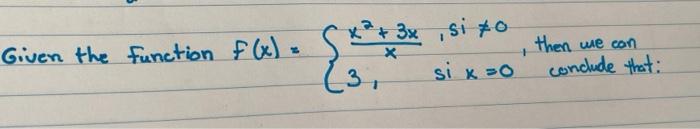 Given the function f(x) = { x² + 3x / x , si ≠0 , then we can
{ 3 , si x =0 conclude that: